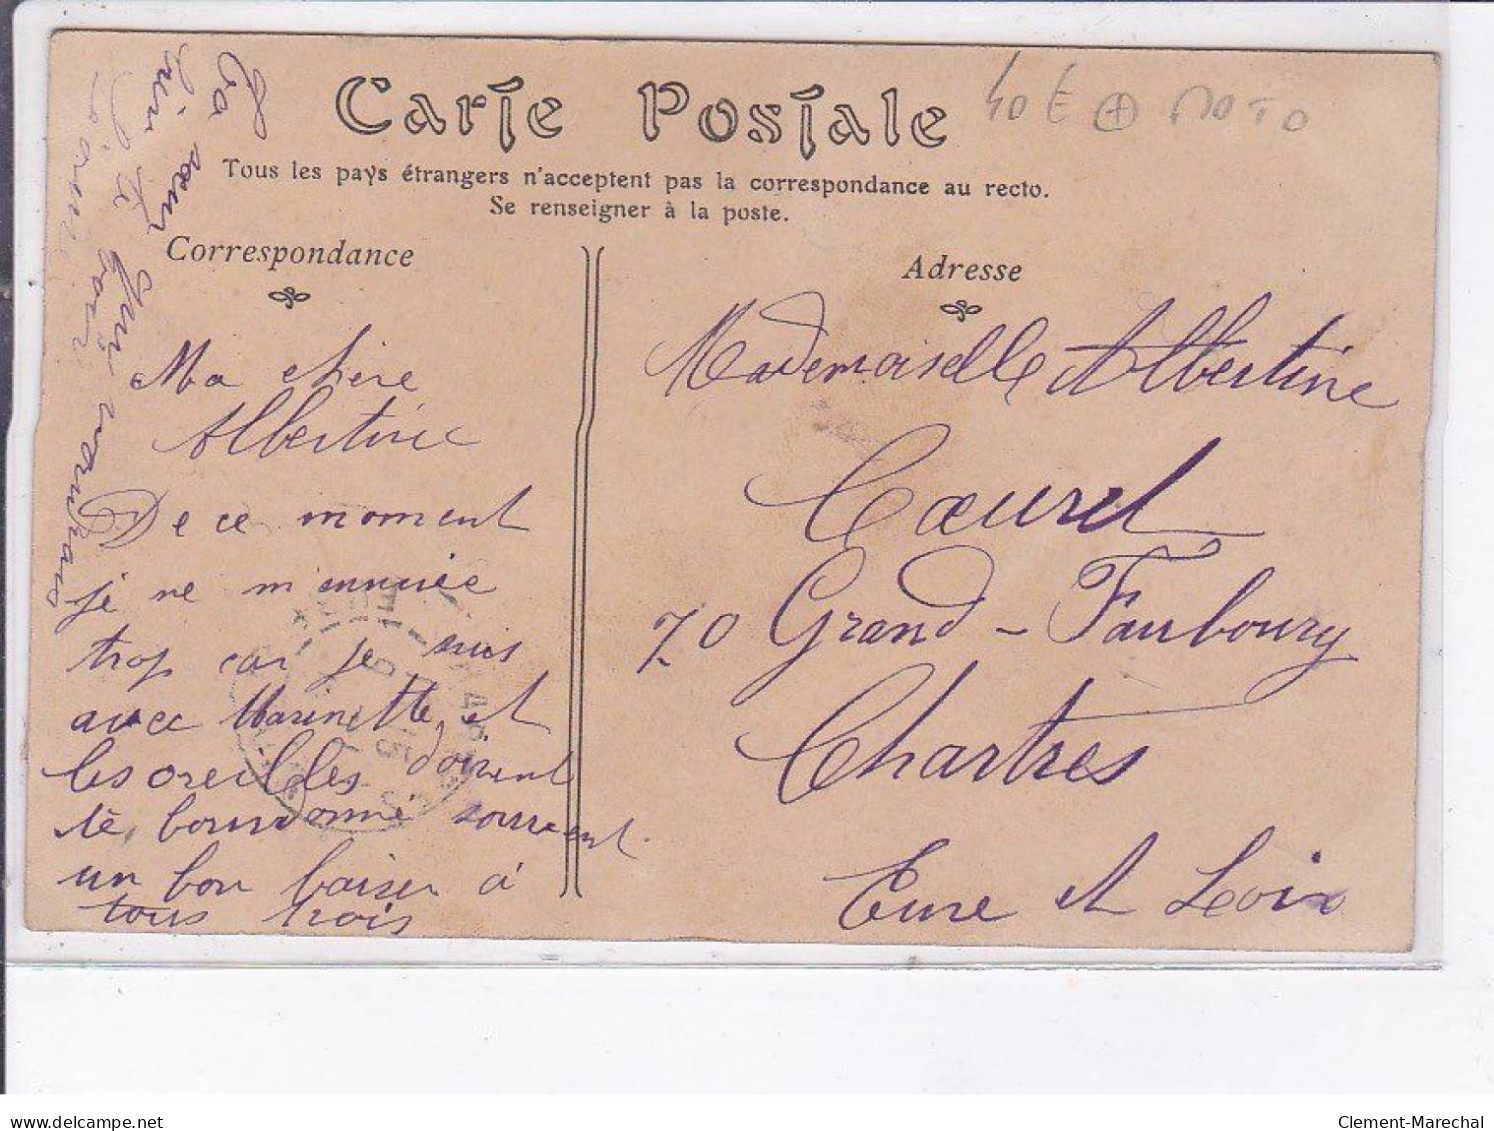 Carte Postale
40 € ⊕ MOTO
Tous les pays étrangers n'acceptent pas la correspondance au recto.
Se renseigner à la poste.
Correspondance
Adresse
Ma chère
Albertine
De ce moment
je ne m'ennuie
trop car je suis
avec Marinette, et
les oreilles doivent
te bourdonné souvent.
un bon baiser à
tous trois
Ta sœur
Mademoiselle Albertine
Cœuret
70 Grand-Faubourg
Chartres
Eure et Loir
delcampe.net
Clement-Marechal